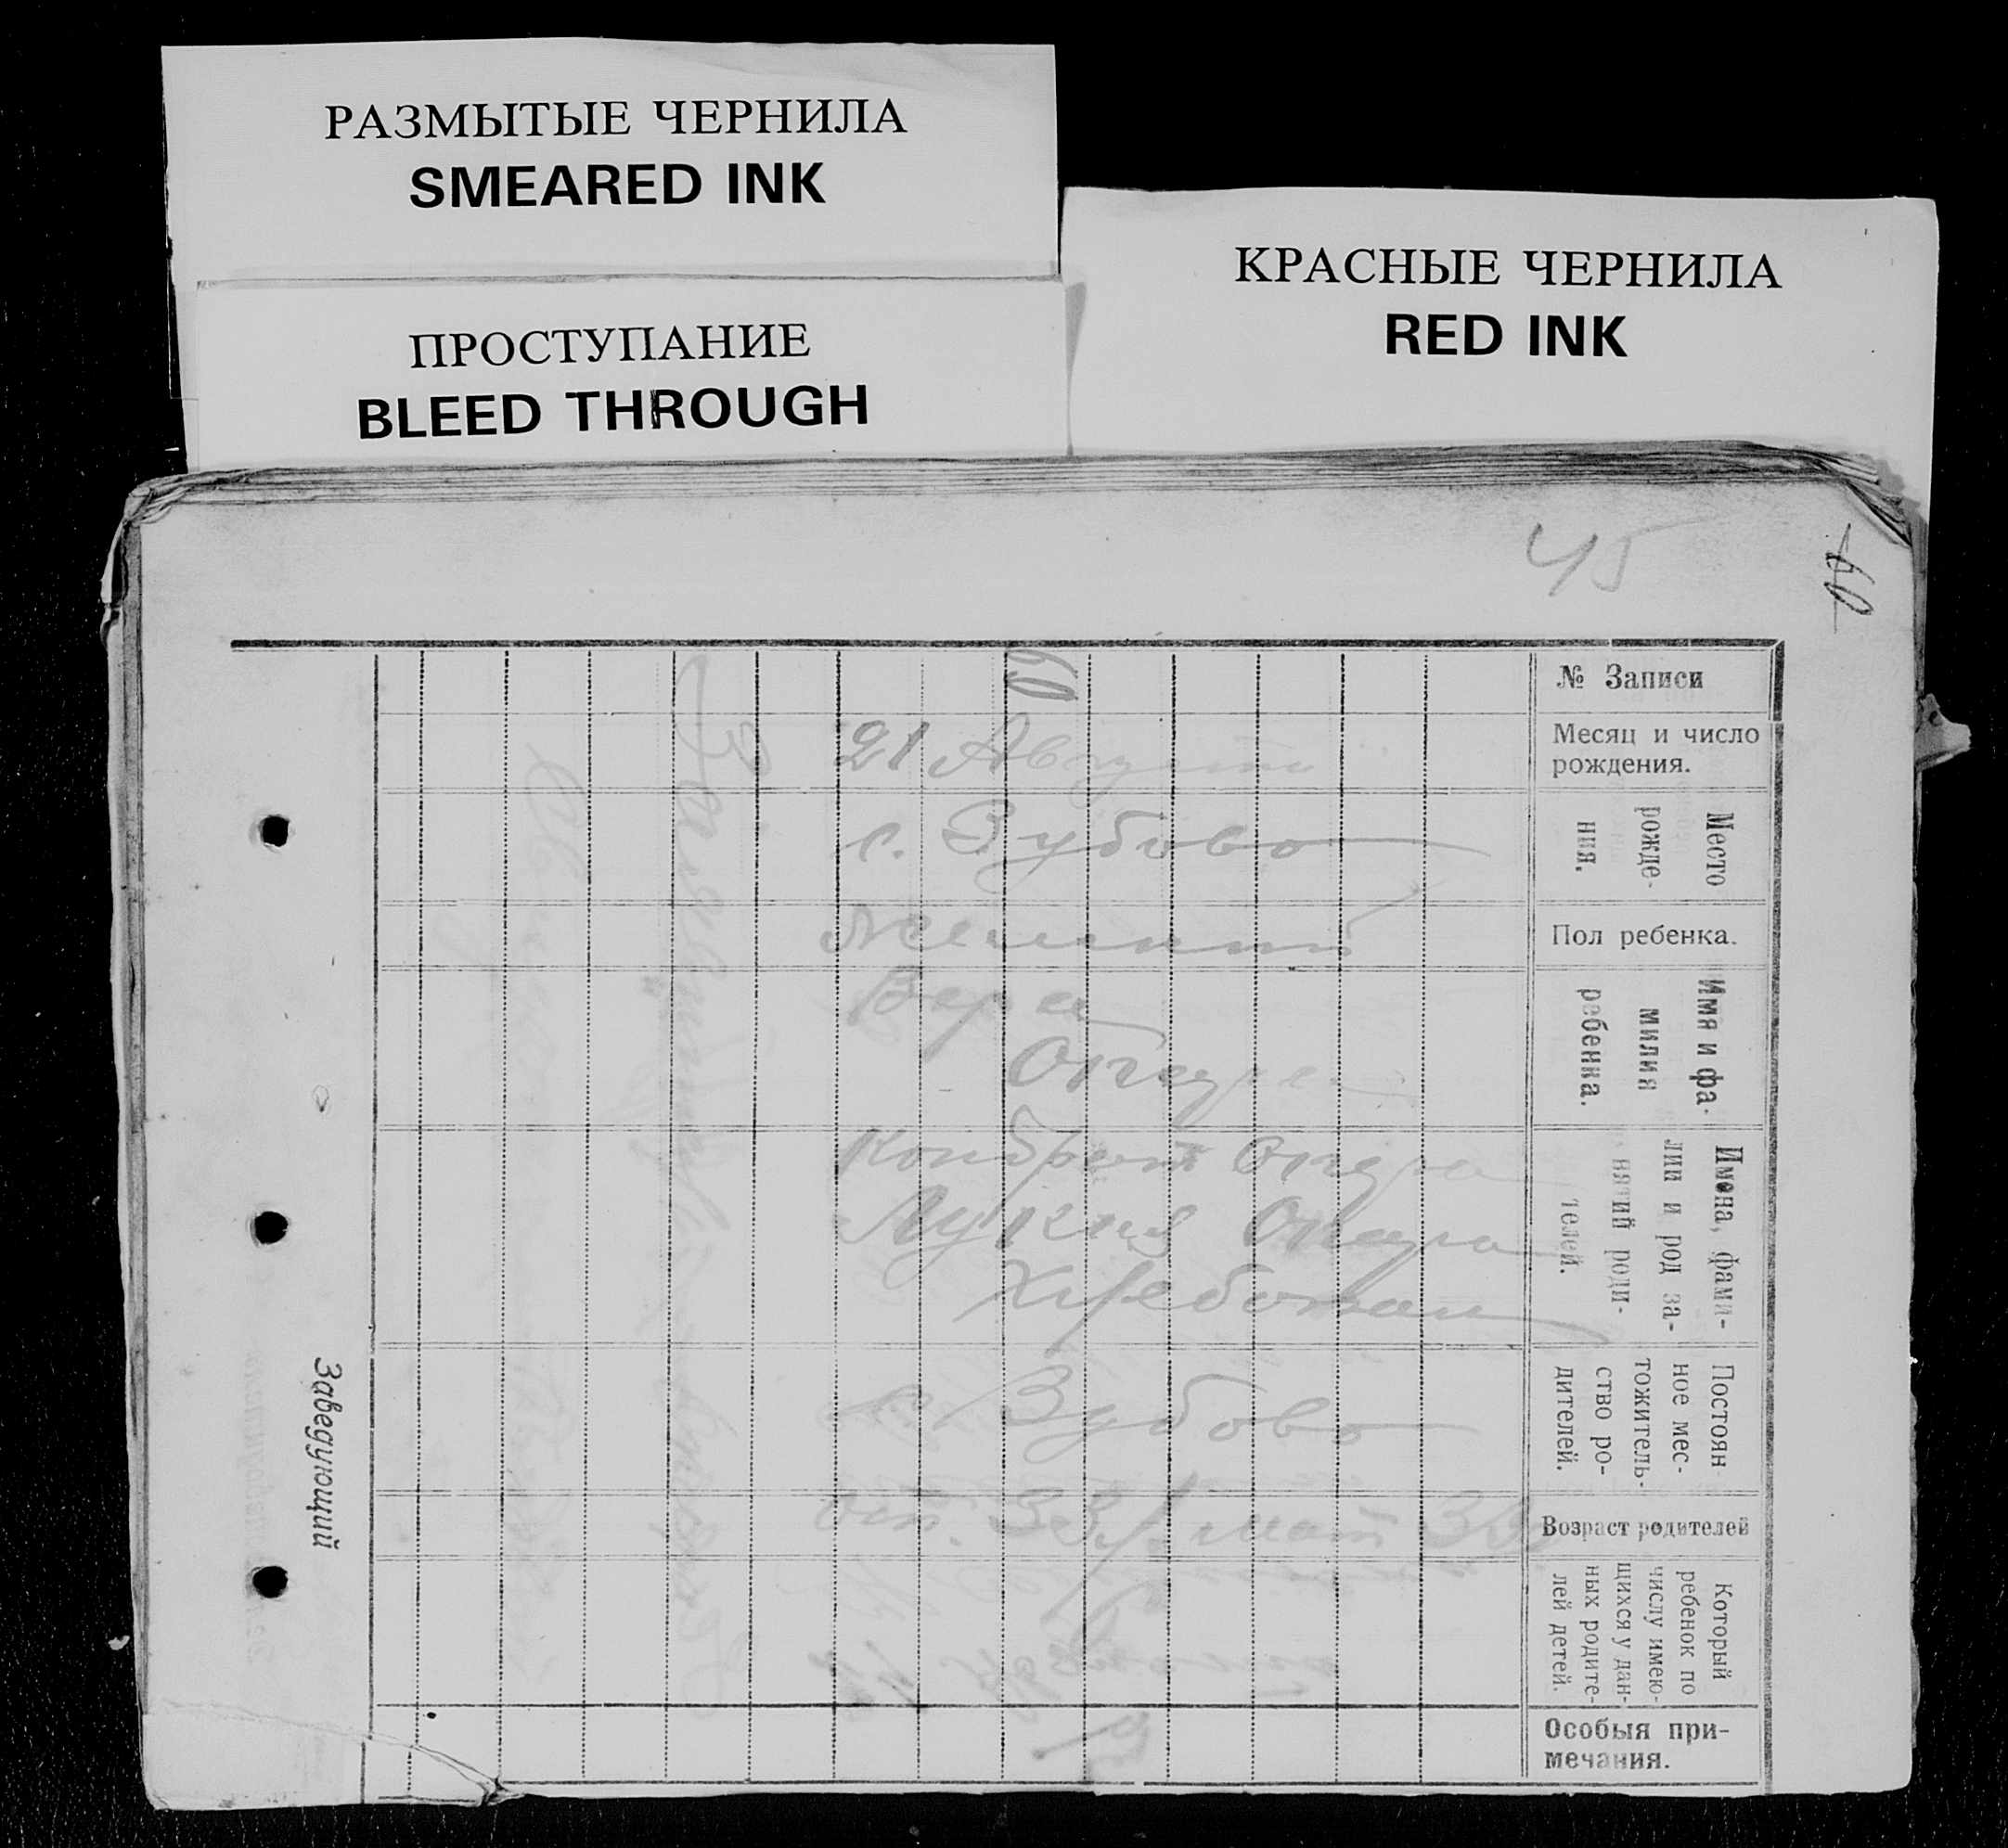 РАЗМЫТЫЕ ЧЕРНИЛА
SMEARED INK
ПРОСТУПАНИЕ
BLEED THROUGH
КРАСНЫЕ ЧЕРНИЛА
RED INK
45
60
№ Записи
60
Месяц и число
рождения.
21 Августа
Место
рожде-
ния.
с. Зубово
Пол ребенка.
женский
Имя и фа-
милия
ребенка.
Вера
Имена, фами-
лии и род за-
нятий роди-
телей.
Кондрат
Лукия
Хлебопаш
Постоян
ное мес-
тожитель-
ство ро-
дителей.
с. Зубово
Возраст родителей
от. 33 / мат 33
Который
ребенок по
числу имею-
щихся у дан-
ных родите-
лей детей.
Особыя при-
мечания.
Заведующий